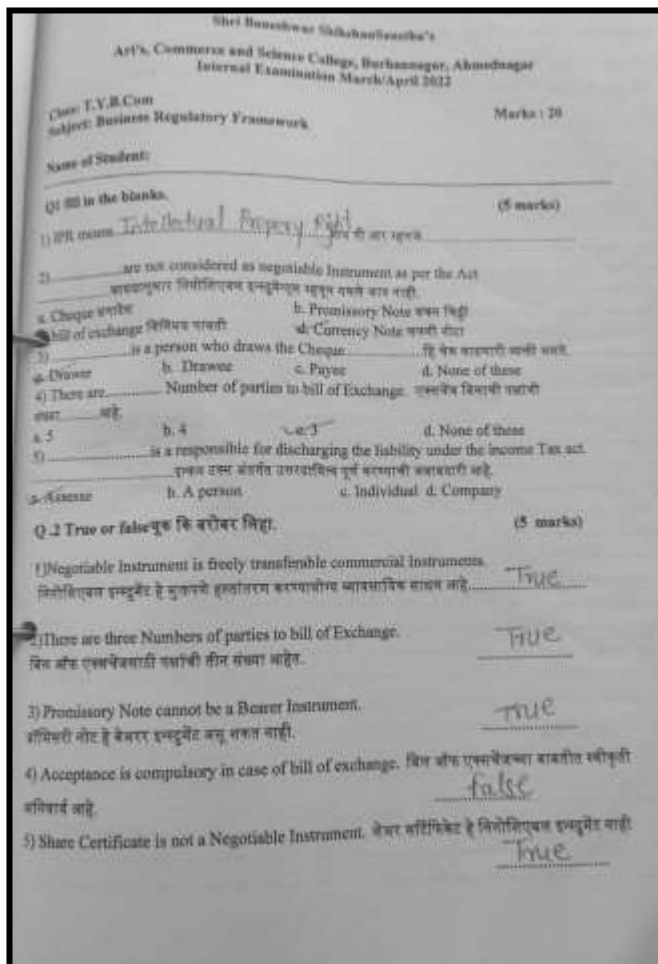 Shri Baneshwar ShikshanSanstha's
Art's, Commerce and Science College, Burhannagar, Ahmednagar
Internal Examination March/April 2022
Class: T.Y.B.Com
Marks : 20
Subject: Business Regulatory Framework
Name of Student:
Q1 fill in the blanks.
(5 marks)
1) IPR means Intellectual Propery Right
2) ............ are not considered as negotiable Instrument as per the Act
a. Cheque धनादेश b. Promissory Note वचन चिठ्ठी
bill of exchange विनिमय पावती d. Currency Note चलनी नोटा
3) ............ is a person who draws the Cheque ............ हि चेक काढणारी व्यक्ती असते.
a. Drawer b. Drawee c. Payee d. None of these
4) There are ........ Number of parties to bill of Exchange. एक्सचेंज बिलाची पक्षांची
संख्या ........ आहे.
a. 5 b. 4 c. 3 d. None of these
5) ............ is a responsible for discharging the liability under the income Tax act.
............ इन्कम टक्स अंतर्गत उत्तरदायित्व पूर्ण करण्याची जबाबदारी आहे.
a. Assesse b. A person c. Individual d. Company
Q.2 True or false चूक कि बरोबर लिहा.
(5 marks)
1)Negotiable Instrument is freely transferable commercial Instruments.
निगोशिएबल इन्स्ट्रुमेंट हे मुक्तपणे हस्तांतरण करण्यायोग्य व्यावसायिक साधन आहे. True
2)There are three Numbers of parties to bill of Exchange. True
बिल ऑफ एक्सचेंजसाठी पक्षांची तीन संख्या आहेत.
3) Promissory Note cannot be a Bearer Instrument. True
प्रॉमिसरी नोट हे बेअरर इन्स्ट्रुमेंट असू शकत नाही.
4) Acceptance is compulsory in case of bill of exchange. बिल ऑफ एक्सचेंजच्या बाबतीत स्वीकृती
अनिवार्य आहे. false
5) Share Certificate is not a Negotiable Instrument. शेअर सर्टिफिकेट हे निगोशिएबल इन्स्ट्रुमेंट नाही
True